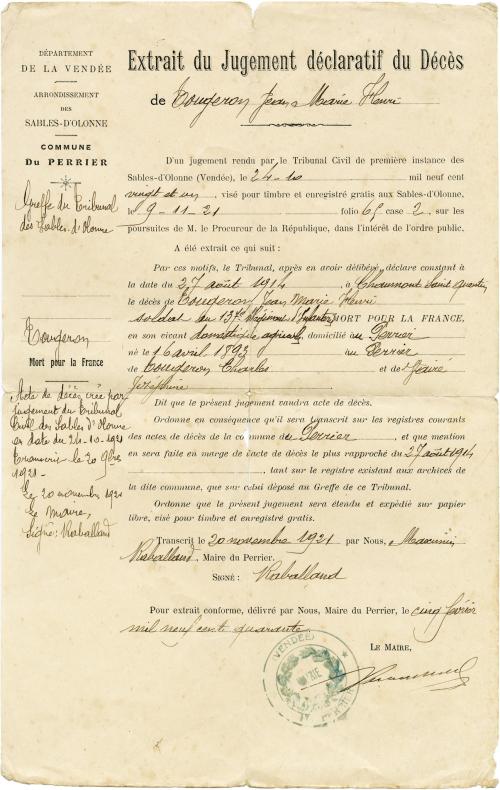 DÉPARTEMENT
DE LA VENDÉE
ARRONDISSEMENT
DES
SABLES-D'OLONNE
COMMUNE
DU PERRIER
Greffe du Tribunal
des Sables d'Olonne
Tougeron
Mort pour la France
Acte de décès créé par
jugement du Tribunal
Civil des Sables d'Olonne
en date du 24-10-1921
Transcrit le 20 9bre
1921-
Le 20 novembre 1921
Le Maire,
Signé: Raballand
Extrait du Jugement déclaratif du Décès
de Tougeron Jean Marie Henri
D'un jugement rendu par le Tribunal Civil de première instance des
Sables-d'Olonne (Vendée), le 24-10 mil neuf cent
vingt et un, visé pour timbre et enregistré gratis aux Sables-d'Olonne,
le 9-11-21 folio 65 case 2 sur les
poursuites de M. le Procureur de la République, dans l'intérêt de l'ordre public,
A été extrait ce qui suit :
Par ces motifs, le Tribunal, après en avoir délibéré, déclare constant à
la date du 27 août 1914 à Chaumont Saint Quentin
le décès de Tougeron Jean Marie Henri
soldat au 137e Régiment d'Infanterie MORT POUR LA FRANCE,
en son vivant domestique agricole, domicilié au Perrier
né le 16 avril 1893 au Perrier
de Tougeron Charles et de
Joséphine
Dit que le présent jugement vaudra acte de décès.
Ordonne en conséquence qu'il sera transcrit sur les registres courants
des actes de décès de la commune du Perrier, et que mention
en sera faite en marge de l'acte de décès le plus rapproché du 27 août 1914
, tant sur le registre existant aux archives de
la dite commune, que sur celui déposé au Greffe de ce Tribunal.
Ordonne que le présent jugement sera étendu et expédié sur papier
libre, visé pour timbre et enregistré gratis.
Transcrit le 20 novembre 1921 par Nous, Maximin
Raballand, Maire du Perrier.
SIGNÉ : Raballand
Pour extrait conforme, délivré par Nous, Maire du Perrier, le cinq février
mil neuf cent quarante
LE MAIRE,
(VENDÉE)
MAIRIE